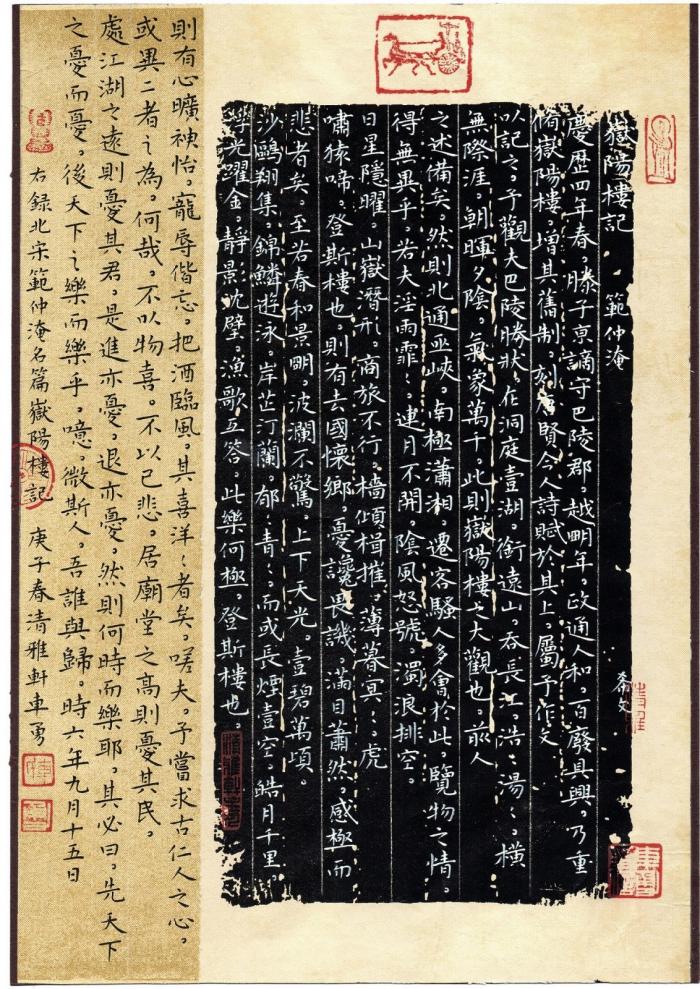 嶽陽樓記 範仲淹
慶歷四年春。滕子京謫守巴陵郡。越明年。政通人和。百廢具興。乃重
脩嶽陽樓。增其舊制。刻唐賢今人詩賦於其上。屬予作文
以記之。予觀大巴陵勝狀。在洞庭壹湖。銜遠山。吞長江。浩〻湯〻。橫
無際涯。朝暉夕陰。氣象萬千。此則嶽陽樓之大觀也。前人
之述備矣。然則北通巫峽。南極瀟湘。遷客騷人多會於此。覽物之情。
得無異乎。若夫淫雨霏〻。連月不開。陰風怒號。濁浪排空。
日星隱曜。山嶽潛形。商旅不行。檣傾楫摧。薄暮冥〻虎
嘯猿啼。登斯樓也。則有去國懷鄉。憂讒畏譏。滿目蕭然。感極而
悲者矣。至若春和景明。波瀾不驚。上下天光。壹碧萬頃。
沙鷗翔集。錦鱗遊泳。岸芷汀蘭。郁〻青〻。而或長煙壹空。皓月千里。
浮光躍金。靜影沈璧。漁歌互答。此樂何極。登斯樓也。
則有心曠神怡。寵辱偕忘。把酒臨風。其喜洋〻者矣。嗟夫。予嘗求古仁人之心。
或異二者之為。何哉。不以物喜。不以己悲。居廟堂之高則憂其民。
處江湖之遠則憂其君。是進亦憂。退亦憂。然則何時而樂耶。其必曰。先天下
之憂而憂。後天下之樂而樂乎。噫。微斯人。吾誰與歸。時六年九月十五日
右錄北宋範仲淹名篇嶽陽樓記 庚子春清雅軒車勇